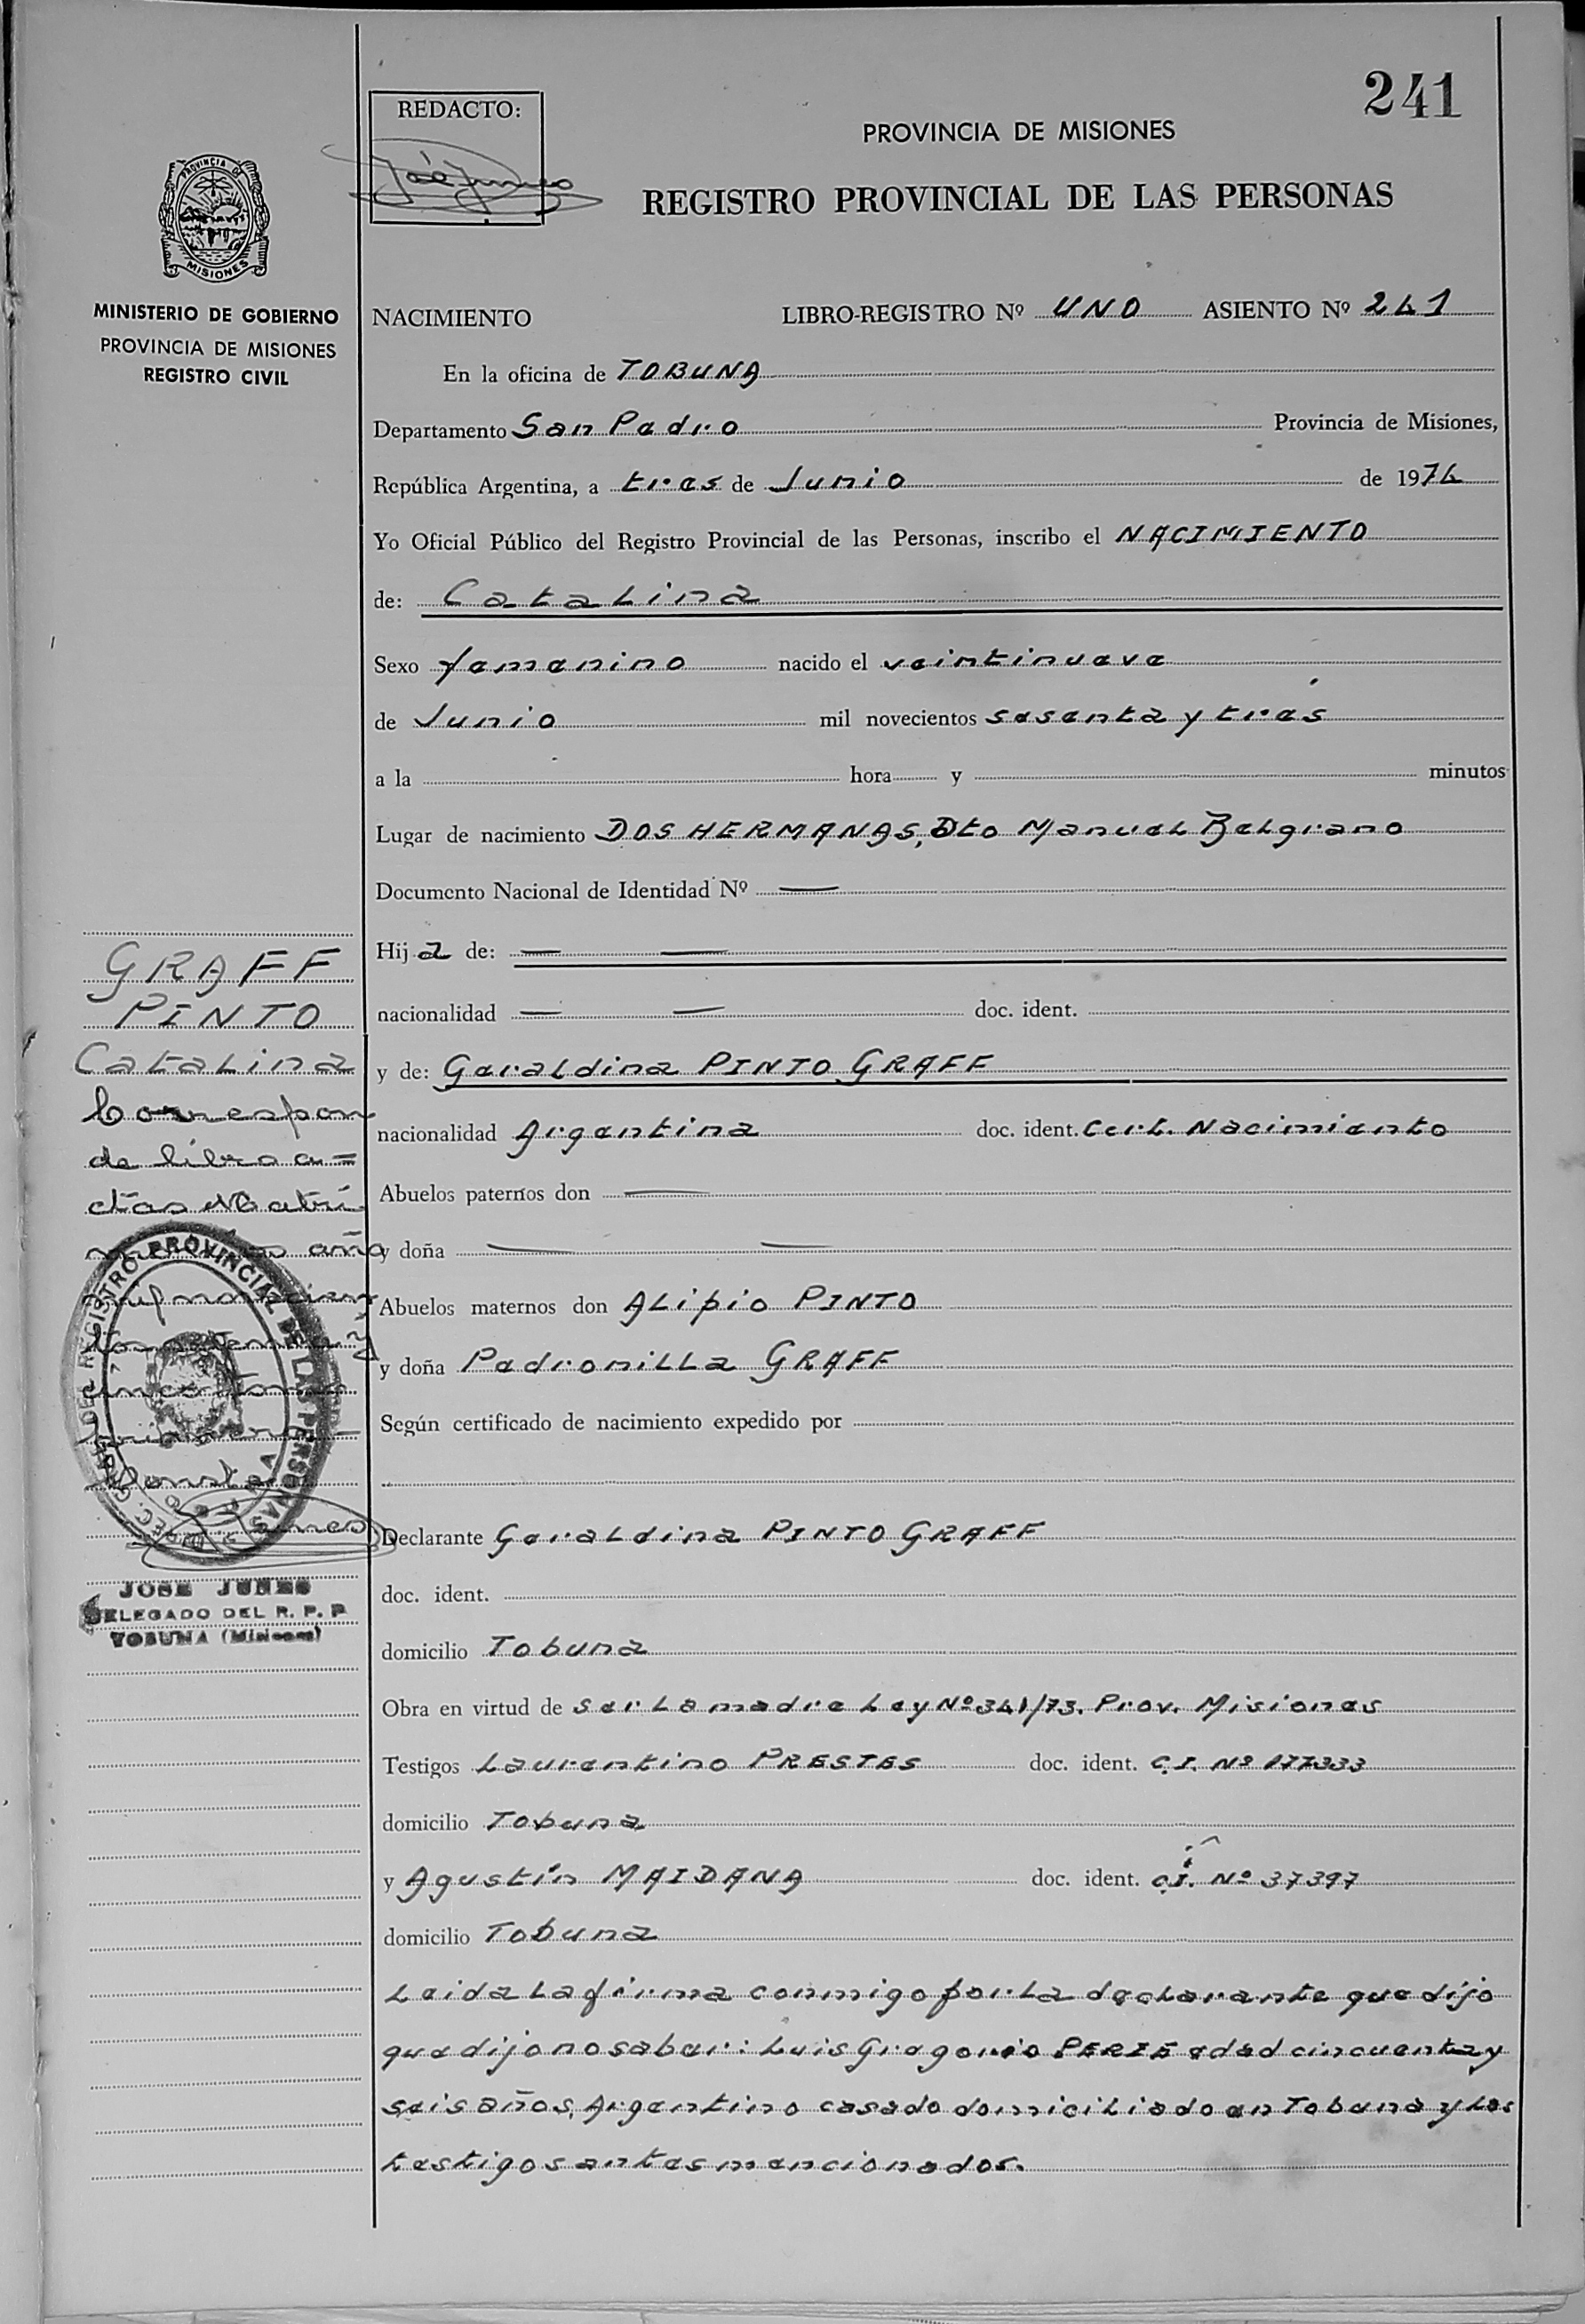 241
REDACTO:
PROVINCIA DE MISIONES
REGISTRO PROVINCIAL DE LAS PERSONAS
PROVINCIA DE
MISIONES
MINISTERIO DE GOBIERNO
PROVINCIA DE MISIONES
REGISTRO CIVIL
NACIMIENTO LIBRO-REGISTRO Nº UNO ASIENTO Nº 241
En la oficina de TOBUNA
Departamento San Pedro Provincia de Misiones,
República Argentina, a tres de Junio de 1974
Yo Oficial Público del Registro Provincial de las Personas, inscribo el NACIMIENTO
de: Catalina
Sexo femenino nacido el veintinueve
de Junio mil novecientos sesenta y tres
a la hora y minutos
Lugar de nacimiento DOS HERMANAS, Dto Manuel Belgrano
Documento Nacional de Identidad Nº —
Hija de: — —
nacionalidad — — doc. ident.
y de: Geraldina PINTO GRAFF
nacionalidad Argentina doc. ident. Cert. Nacimiento
Abuelos paternos don —
y doña — —
Abuelos maternos don ALipio PINTO
y doña Pedronilla GRAFF
Según certificado de nacimiento expedido por
Declarante Geraldina PINTO GRAFF
doc. ident.
domicilio Tobuna
Obra en virtud de ser La madre Ley Nº 341/73. Prov. Misiones
Testigos Laurentino PRESTES doc. ident. C.I. Nº 177333
domicilio Tobuna
y Agustín MAIDANA doc. ident. C.I. Nº 37397
domicilio Tobuna
Leida La firma conmigo por La declarante que dijo
que dijo no saber: Luis Gregorio PERIE edad cincuenta y
seis años, Argentino casado domiciliado en Tobuna y Los
testigos antes mencionados.
GRAFF
PINTO
Catalina
Correspon
de libro a=
ctas Matri
año
Consta
REGISTRO PROVINCIAL DE LAS PERSONAS
JOSE JUNES
DELEGADO DEL R. P. P
TOBUNA (Misiones)